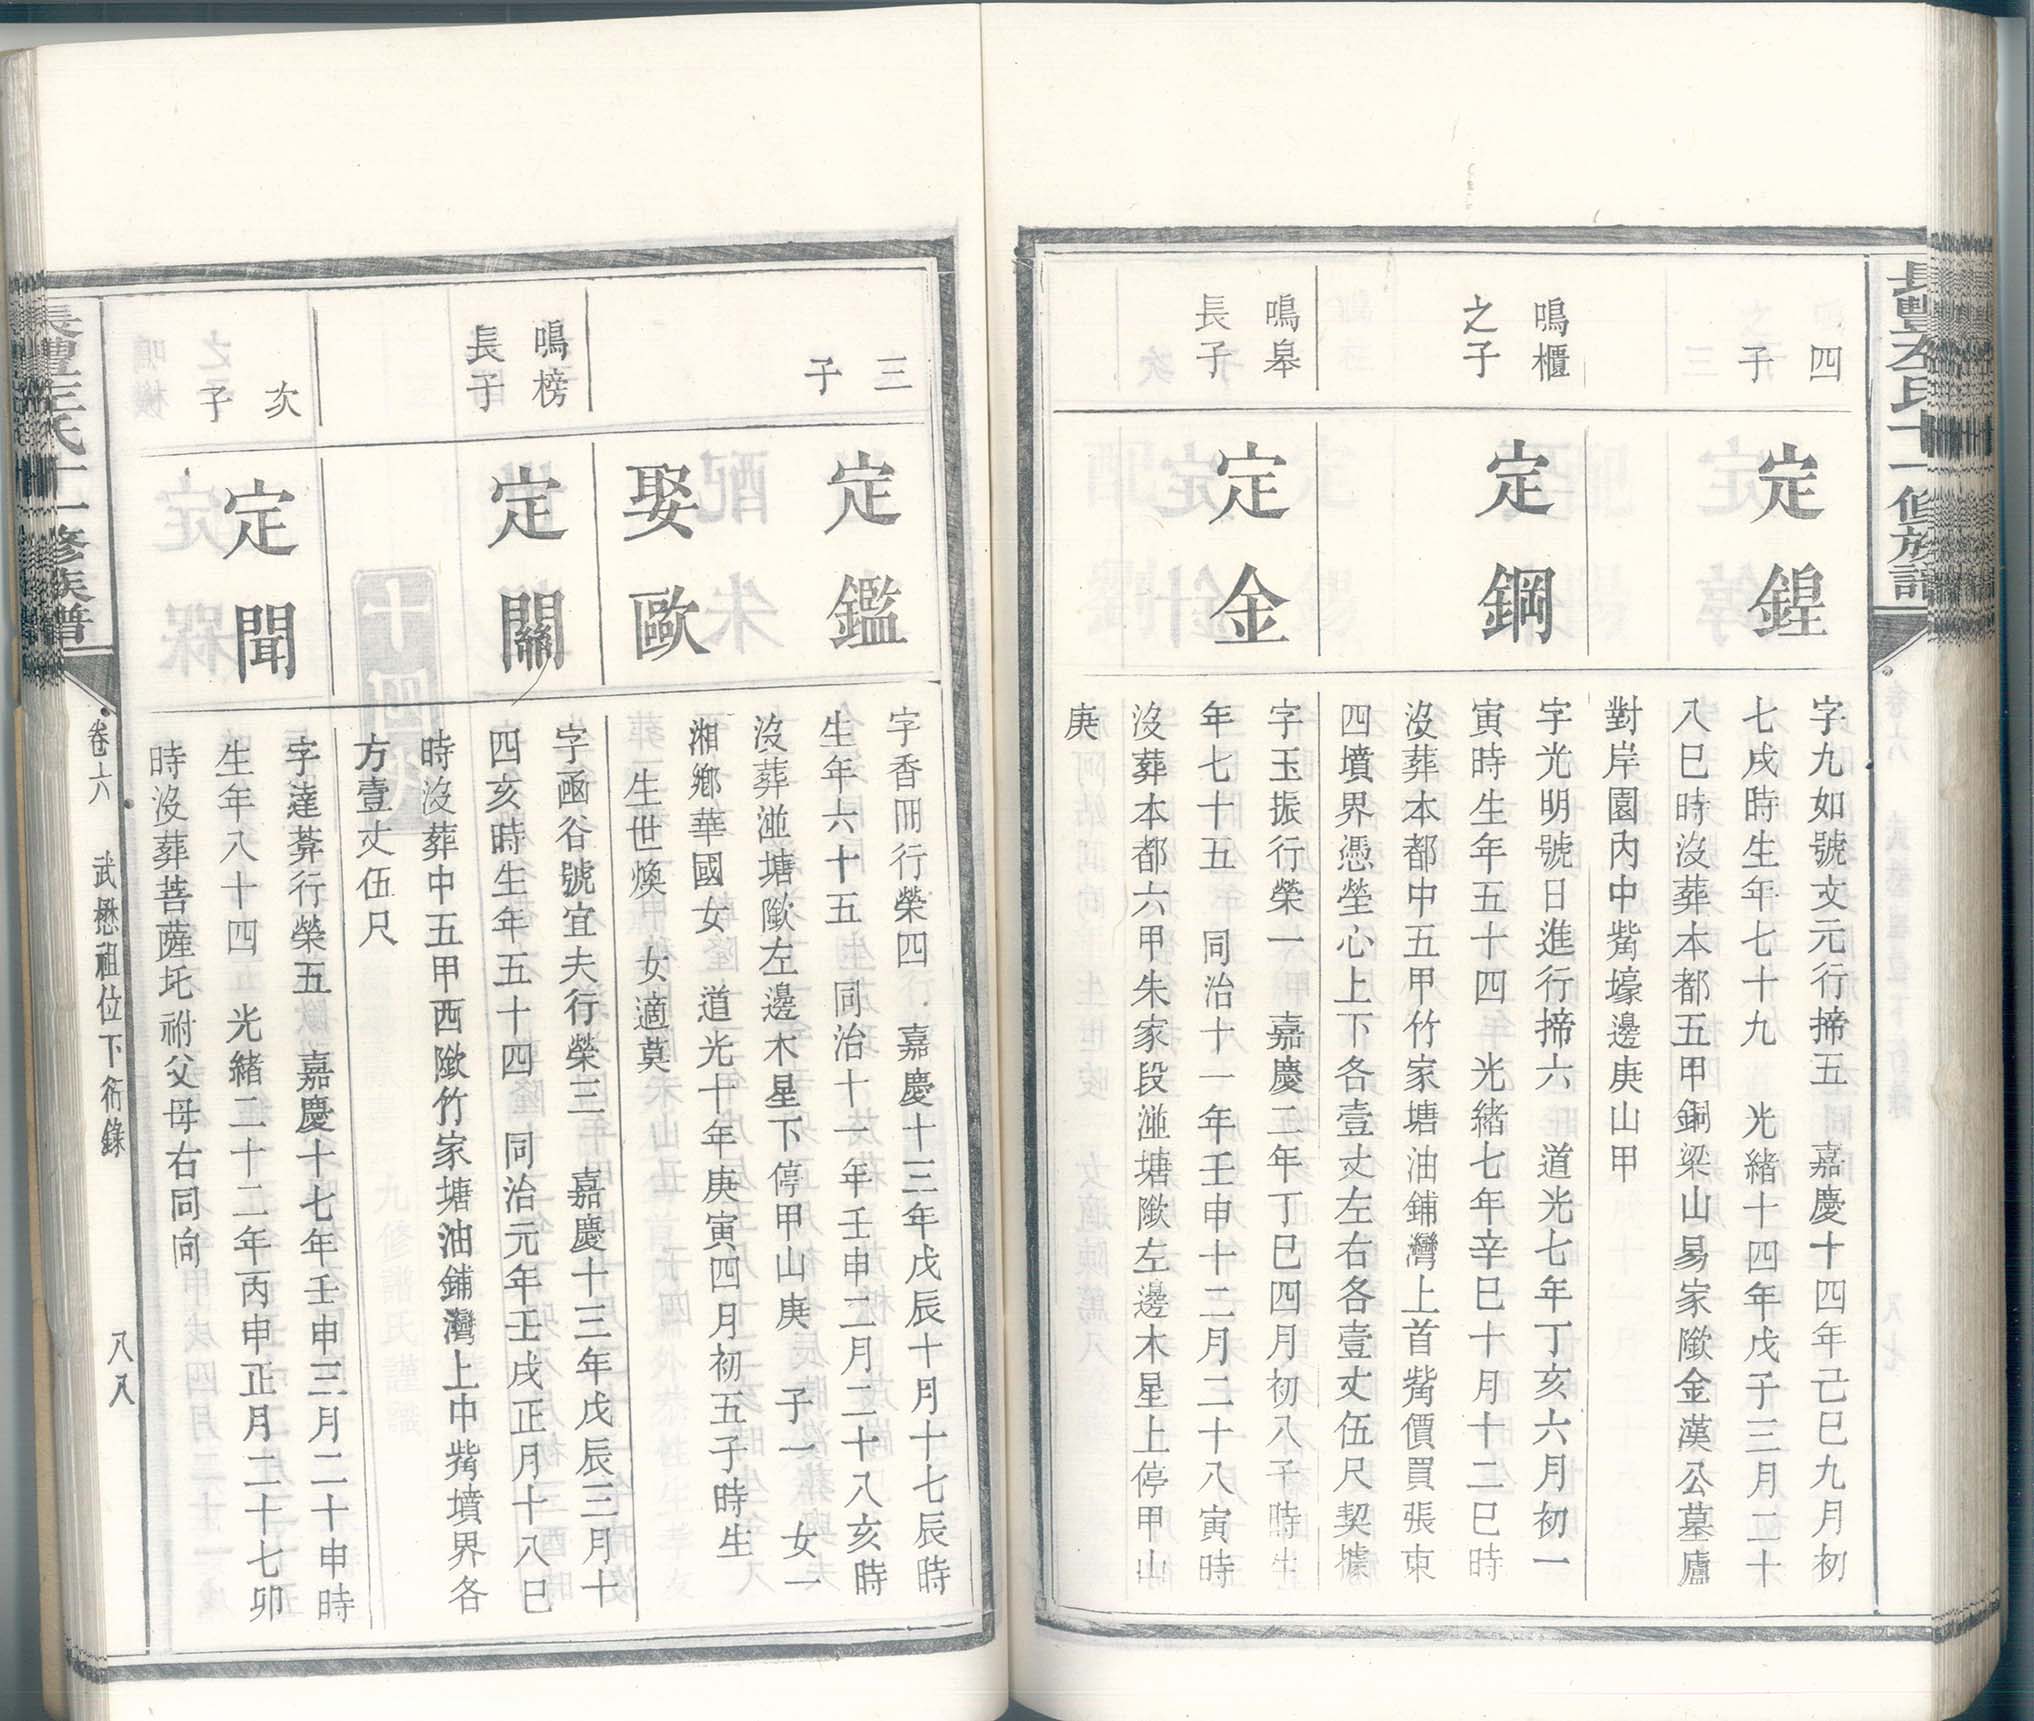 四
子
定鍟
字九如號文元行揥五　嘉慶十四年己巳九月初
七戌時生年七十九　光緒十四年戊子三月二十
八巳時沒葬本都五甲銅梁山易家墩金漢公墓廬
對岸園內中嘴壕邊庚山甲
鳴櫃
之子
定鋼
字光明號日進行揥六　道光七年丁亥六月初一
寅時生年五十四　光緒七年辛巳十月十二巳時
沒葬本都中五甲竹家塘油鋪灣上首嘴價買張東
四墳界憑塋心上下各壹丈左右各壹丈伍尺契據
鳴皋
長子
定金
字玉振行榮一　嘉慶二年丁巳四月初八子時生
年七十五　同治十一年壬申十二月二十八寅時
沒葬本都六甲朱家段湴塘墩左邊木星上停甲山
庚
三
子
定鑑
字香冊行榮四　嘉慶十三年戊辰十月十七辰時
生年六十五　同治十一年壬申二月二十八亥時
沒葬湴塘墩左邊木星下停甲山庚　子一　女一
娶歐
湘鄉華國女　道光十年庚寅四月初五子時生
生世煥　女適莫
鳴榜
長子
定關
字函谷號宜夫行榮三　嘉慶十三年戊辰三月十
四亥時生年五十四　同治元年壬戌正月十八巳
時沒葬中五甲西墩竹家塘油鋪灣上中嘴墳界各
方壹丈伍尺
次
子
定聞
字達䓑行榮五　嘉慶十七年壬申三月二十申時
生年八十四　光緒二十二年丙申正月二十七卯
時沒葬菩薩坨祔父母右同向
卷六　武懋祖位下衍錄　八八